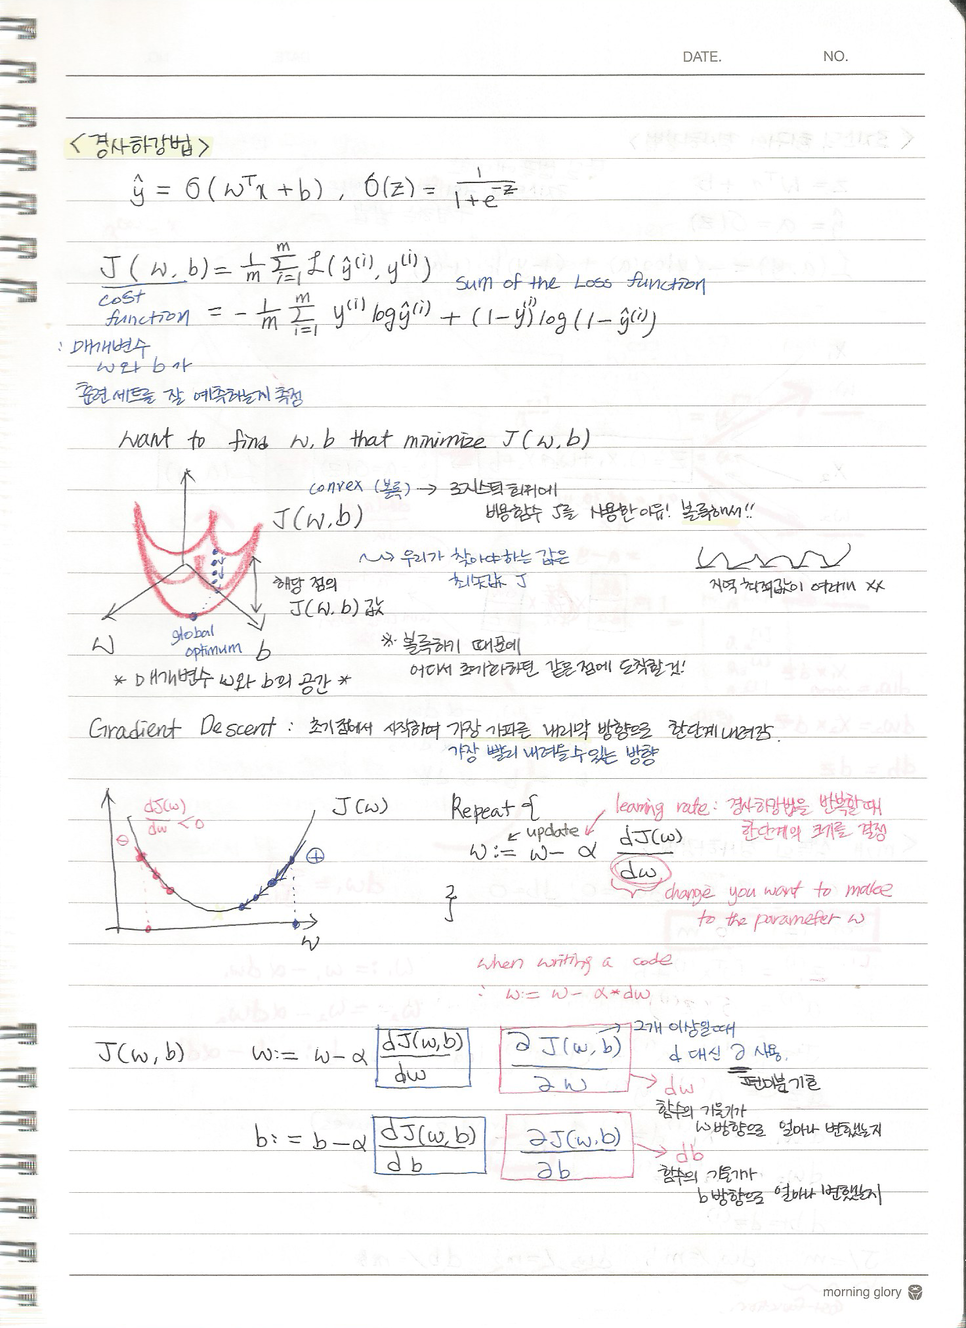 DATE. NO.
<경사하강법>
ŷ = σ(wᵀx + b), σ(z) = 1/(1+e⁻ᶻ)
J(w, b) = 1/m Σ_{i=1}^{m} L(ŷ⁽ⁱ⁾, y⁽ⁱ⁾) sum of the Loss function
cost function = - 1/m Σ_{i=1}^{m} y⁽ⁱ⁾ log ŷ⁽ⁱ⁾ + (1-y⁽ⁱ⁾) log(1-ŷ⁽ⁱ⁾)
: 매개변수
w와 b가
훈련세트를 잘 예측하는지 측정
want to find w, b that minimize J(w, b)
convex (볼록) → 로지스틱 회귀에
비용함수 J를 사용한 이유! 볼록해서!!
J(w, b)
~~> 우리가 찾아야하는 값은
최솟값 J
지역 최적값이 여러개 xx
해당 점의
J(w, b) 값
w
global optimum
b
* 볼록하기 때문에
어디서 초기화하던 같은점에 도착할것!
* 매개변수 w와 b의 공간 *
Gradient Descent : 초기점에서 시작하여 가장 가파른 내리막 방향으로 한단계 내려감.
가장 빨리 내려올수있는 방향
dJ(w)/dw < 0
⊖
J(w)
⊕
w
Repeat {
learning rate : 경사하강법을 반복할때
한단계의 크기를 결정
update
w := w - α dJ(w)/dw
}
change you want to make
to the parameter w
when writing a code
: w := w - α*dw
J(w, b) w := w - α dJ(w,b)/dw ∂J(w,b)/∂w
2개 이상일때
d 대신 ∂ 사용.
편미분기호
→ dw
함수의 기울기가
w방향으로 얼마나 변했는지
b := b - α dJ(w,b)/db ∂J(w,b)/∂b
→ db
함수의 기울기가
b방향으로 얼마나 변했는지
morning glory